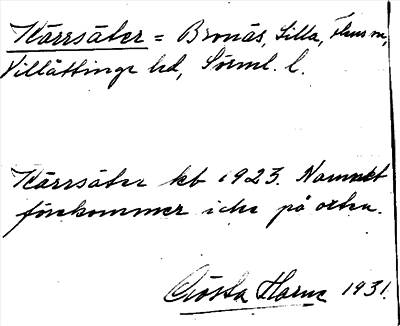 Kärrsäter = Bronäs, Lilla, Flens sn,
Villåttinge hd, Sörml. l.
Kärrsäter kb 1923. Namnet
förekommer icke på orten.
Gösta Harne 1931.